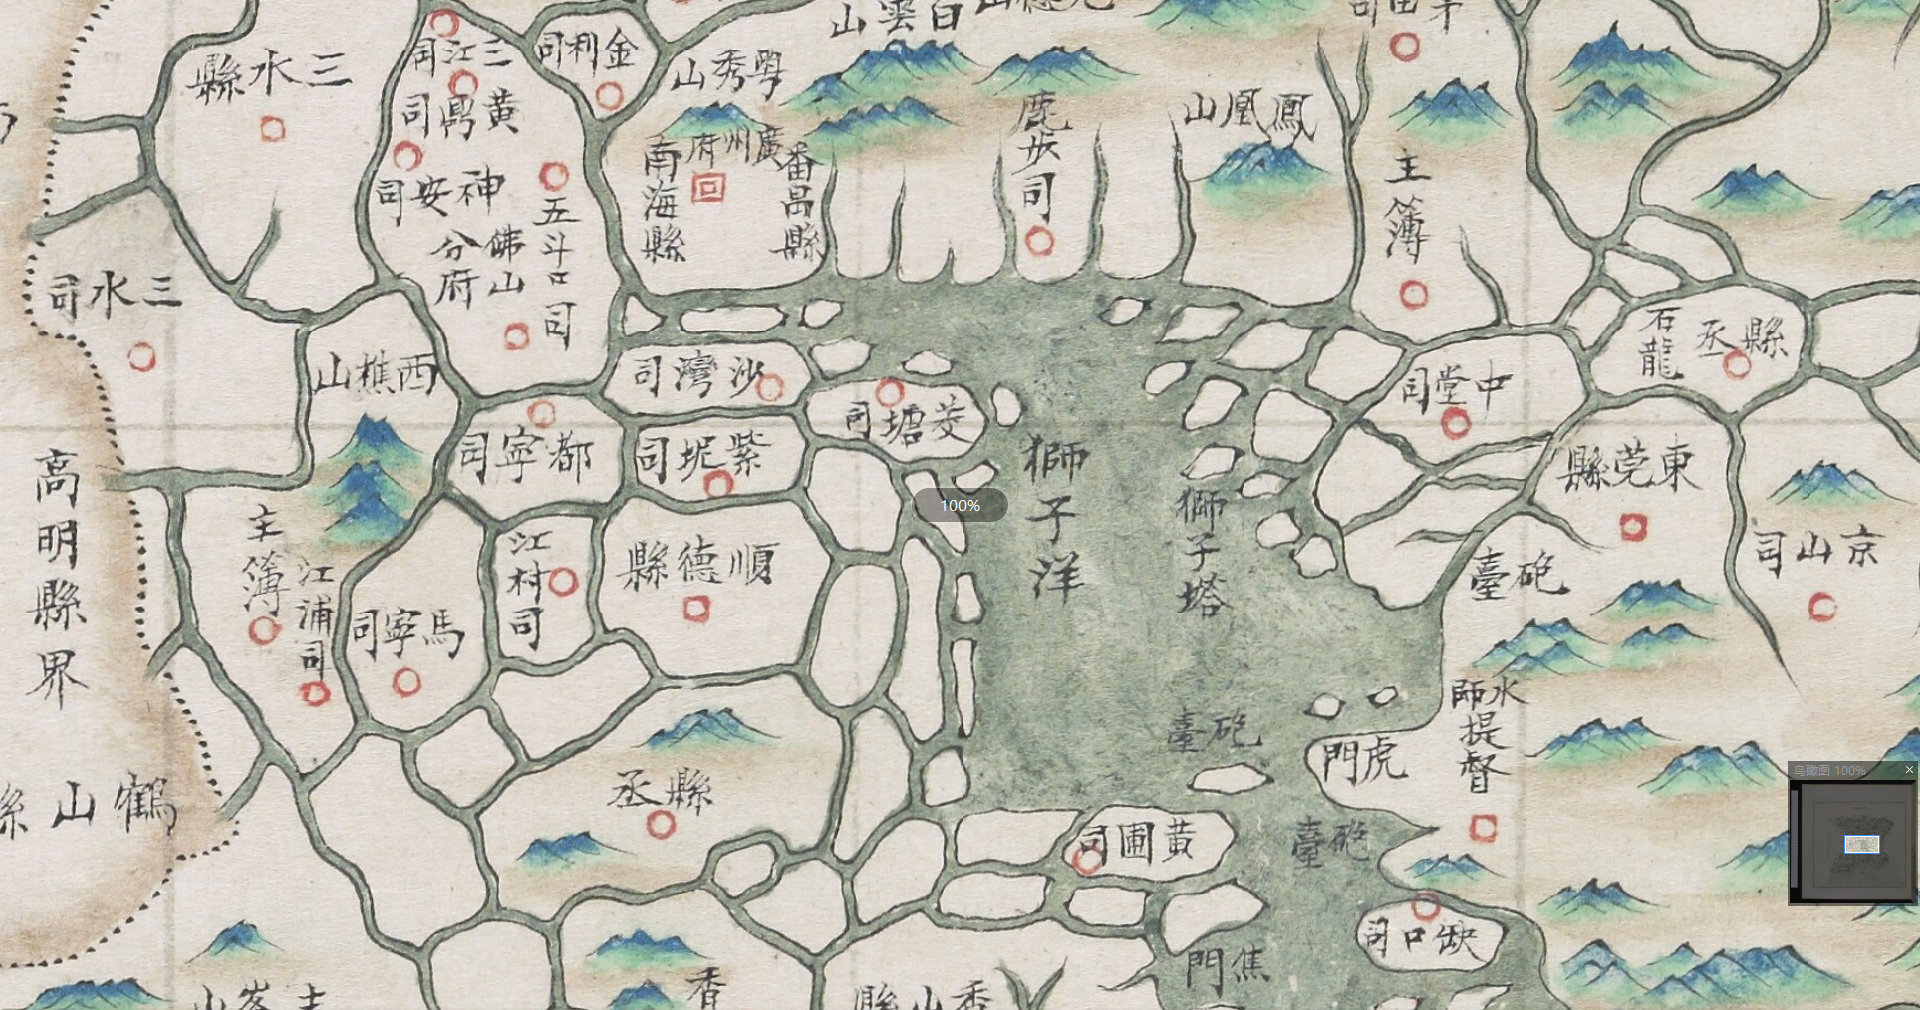 白雲山
三水縣
三江司
金利司
粤秀山
黄鼎司
鹿步司
鳳凰山
廣州府
番禺縣
南海縣
神安司
五斗口司
佛山分府
主簿
三水司
石龍
縣丞
西樵山
沙灣司
茭塘司
中堂司
都寧司
紫坭司
獅子洋
獅子塔
東莞縣
高明縣界
主簿
江浦司
江村司
順德縣
馬寧司
砲臺
京山司
水師提督
砲臺
虎門
縣丞
鶴山縣
黄圃司
砲臺
缺口司
焦門
香
香山縣
100%
鸟瞰图 100%